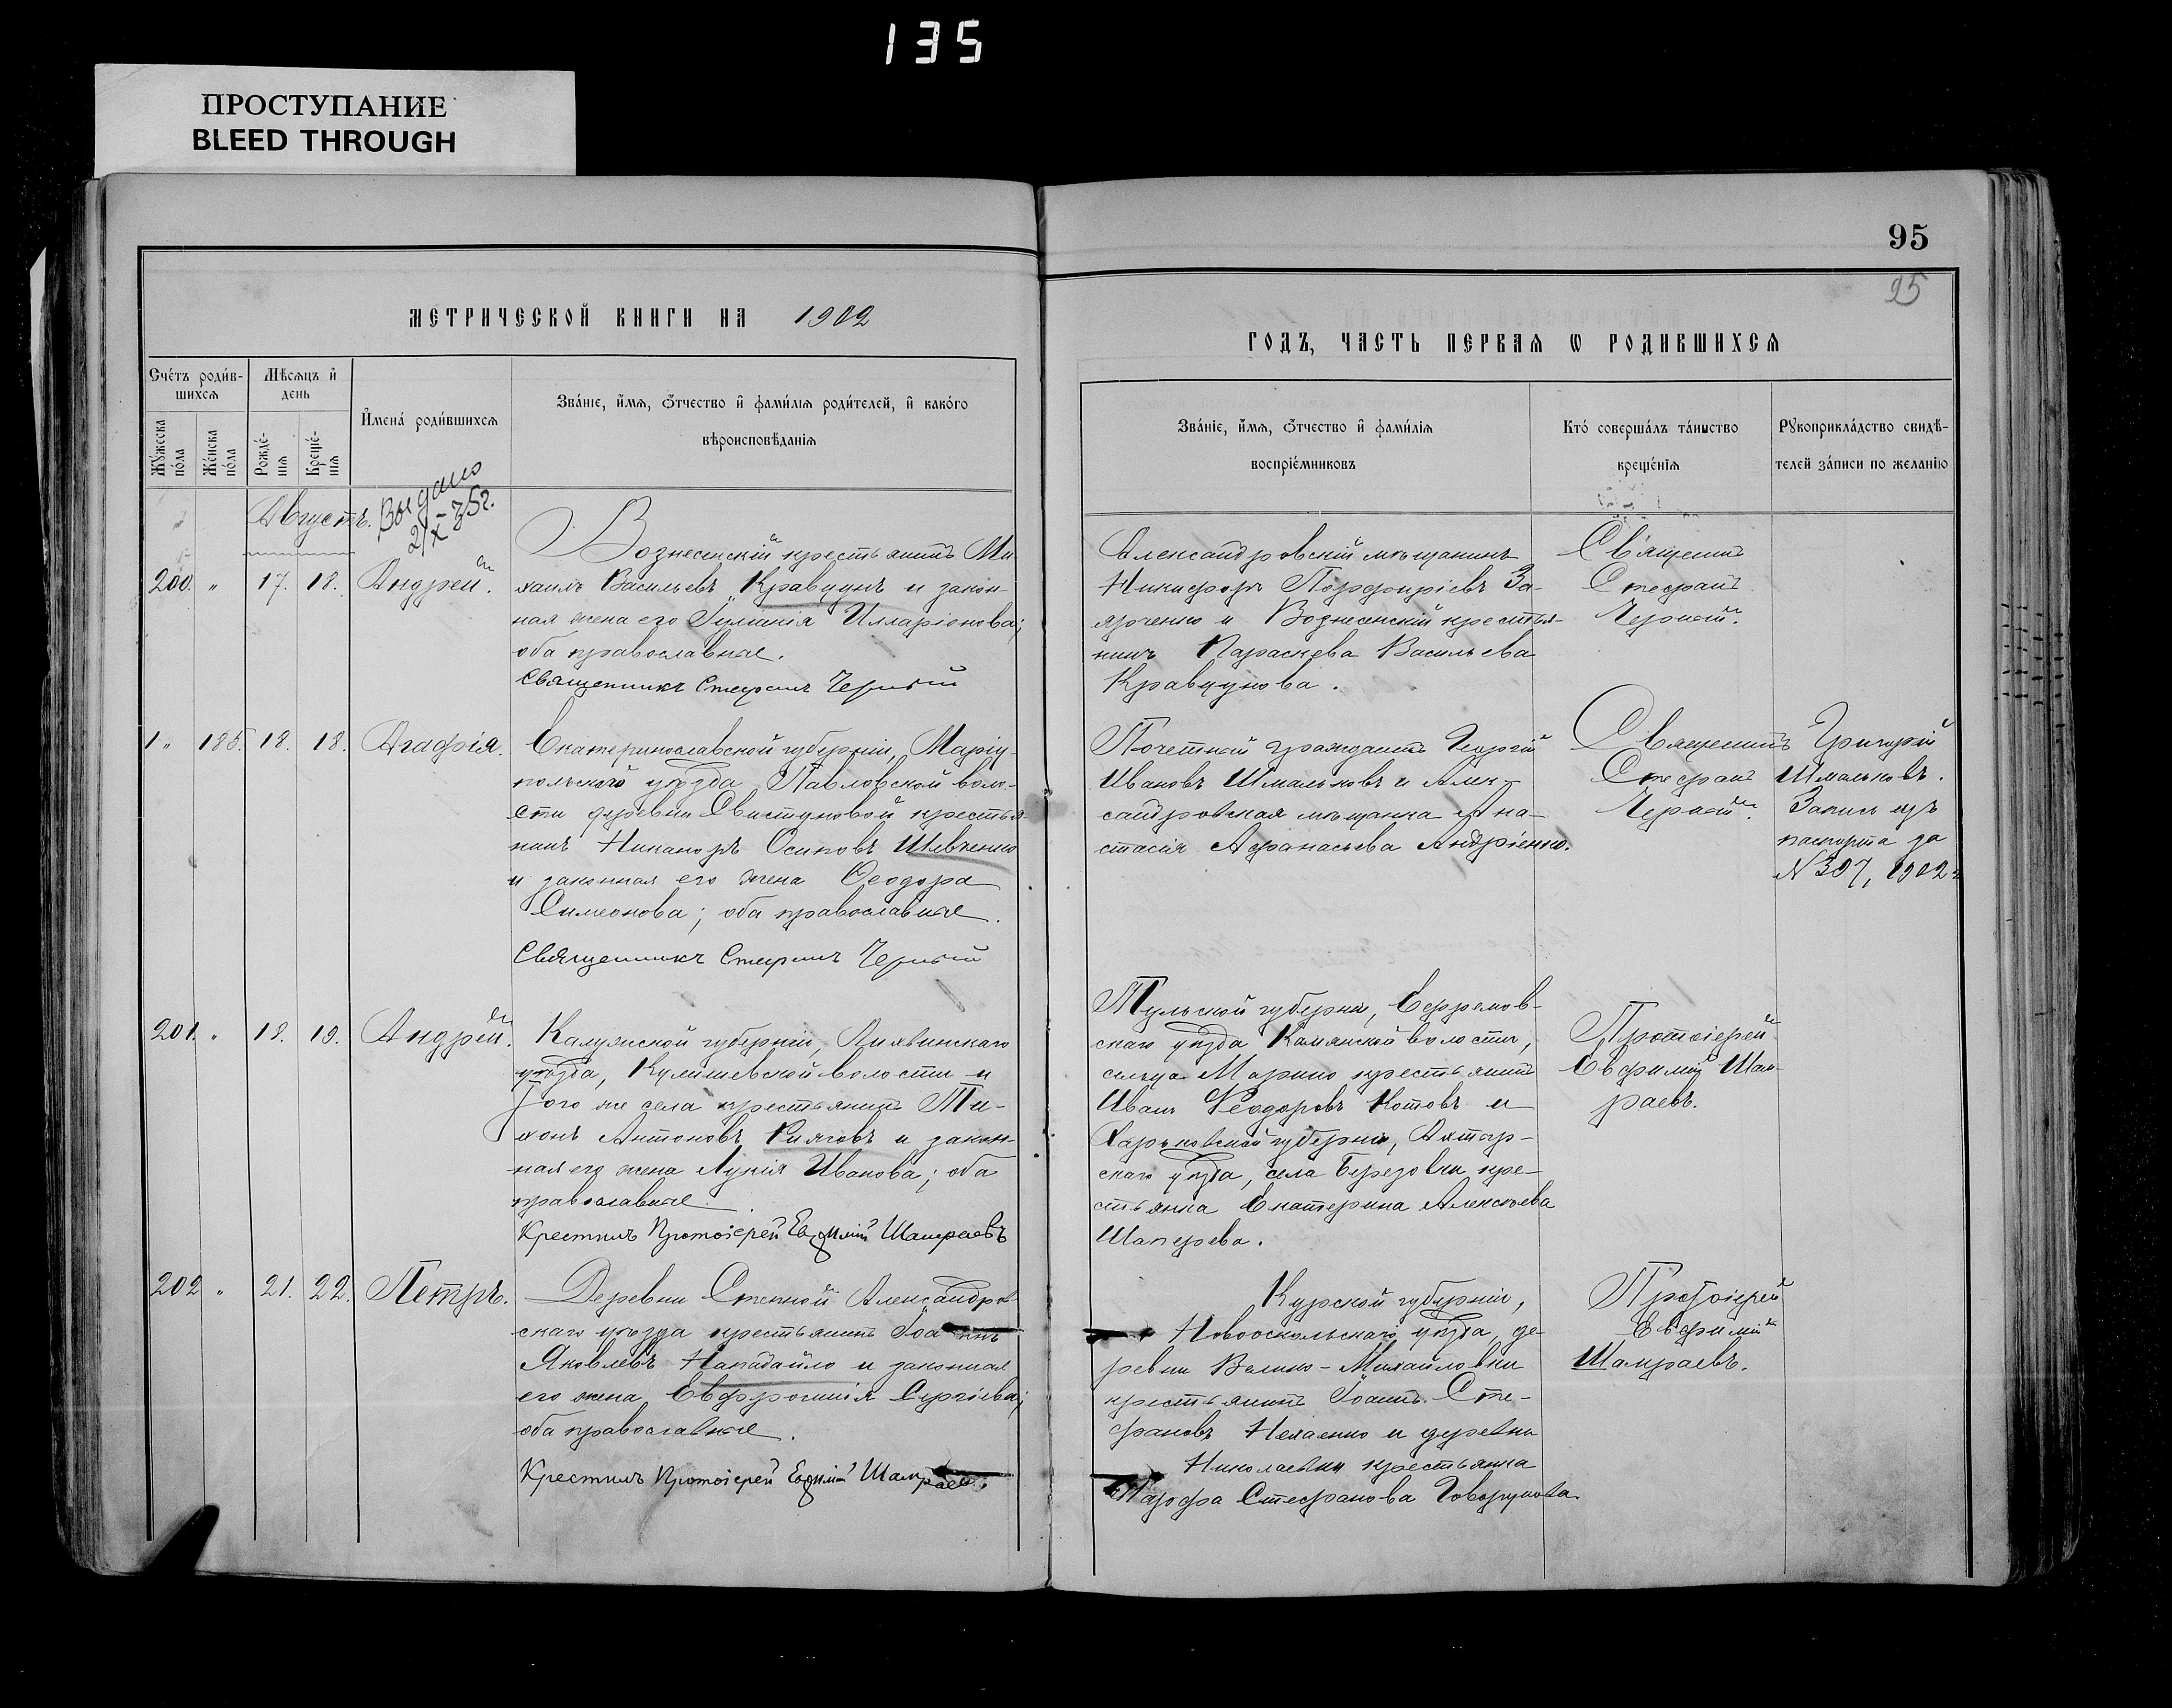 135
ПРОСТУПАНИЕ
BLEED THROUGH
95
25
МЕТРИЧЕСКОЙ КНИГИ НА 1902
ГОДЪ, ЧАСТЬ ПЕРВАЯ Ѡ РОДИВШИХСЯ
Счétъ роди́в-
шихсѧ
Мѣ́сѧцъ и҆
день
Мꙋ́жеска
по́ла
Же́нска
по́ла
Рожде́-
нїѧ
Креще́-
нїѧ
И҆мена̀ роди́вшихсѧ
Зва́нїе, и҆́мѧ, ѻ҆́тчество и҆ фами́лїѧ роди́телей, и҆ како́го
вѣроисповѣ́данїѧ
Зва́нїе, и҆́мѧ, ѻ҆́тчество и҆ фами́лїѧ
воспрїе́мниковъ
Кто̀ соверша́лъ та́инство
креще́нїѧ
Рꙋкоприкла́дство свидѣ́-
телей за́писи по жела́нїю
Августъ.
Выдано
21/X – 35г.
200. " 17. 18. Андрей.
Вознесенскій крестьянинъ Ми-
хаилъ Васильевъ Кравцунъ и закон-
ная жена его Гулинія Илларіонова;
оба православные.
Священникъ Стефанъ Черный
Александровскій мѣщанинъ
Никифоръ Порфиріевъ За-
ярченко и Вознесенскій крестья-
нинъ Параскева Васильева
Кравцунова.
Священникъ
Стефанъ
Черный.
1 " 185. 18. 18. Агафія.
Екатеринославской губерніи, Маріу-
польскаго уѣзда Павловской воло-
сти деревни Свистуновой крестья-
нинъ Никаноръ Осиповъ Шевченко
и законная его жена Ѳеодора
Симеонова; оба православные.
Священникъ Стефанъ Черный
Почетный гражданинъ Георгій
Ивановъ Шмальковъ и Алек-
сандровская мѣщанка Ана-
стасія Афанасьева Андріенко.
Священникъ
Стефанъ
Черный.
Григорій
Шмальковъ.
Запись изъ
паспорта за
№ 307, 1902 г
201. " 18. 19. Андрей.
Калужской губерніи, Лихвинскаго
уѣзда, Кулешевской волости и
того же села крестьянинъ Ти-
хонъ Антоновъ Князовъ и закон-
ная его жена Лукія Иванова; оба
православные.
Крестилъ Протоіерей Евфимій Шамраевъ
Тульской губерніи, Ефремов-
скаго уѣзда Каменской волости,
сельца Марино крестьянинъ
Иванъ Ѳеодоровъ Котовъ и
Харьковской губерніи, Ахтыр-
скаго уѣзда, села Березовки кре-
стьянка Екатерина Алексѣева
Шаперева.
Протоіерей
Евфимій Шам-
раевъ.
202 " 21. 22. Петръ.
Деревни Степной Александров-
скаго уѣзда крестьянинъ Іоаннъ
Яковлевъ Нападайло и законная
его жена Евфросинія Сергіева;
оба православные.
Крестилъ Протоіерей Евфимій Шамраевъ
Курской губерніи,
Новооскольскаго уѣзда, де-
ревни Велико-Михайловки
крестьянинъ Іоаннъ Сте-
фановъ Нехаенко и деревни
Николаевки крестьянка
Марфа Стефанова Говорунова.
Протоіерей
Евфимій
Шамраевъ.